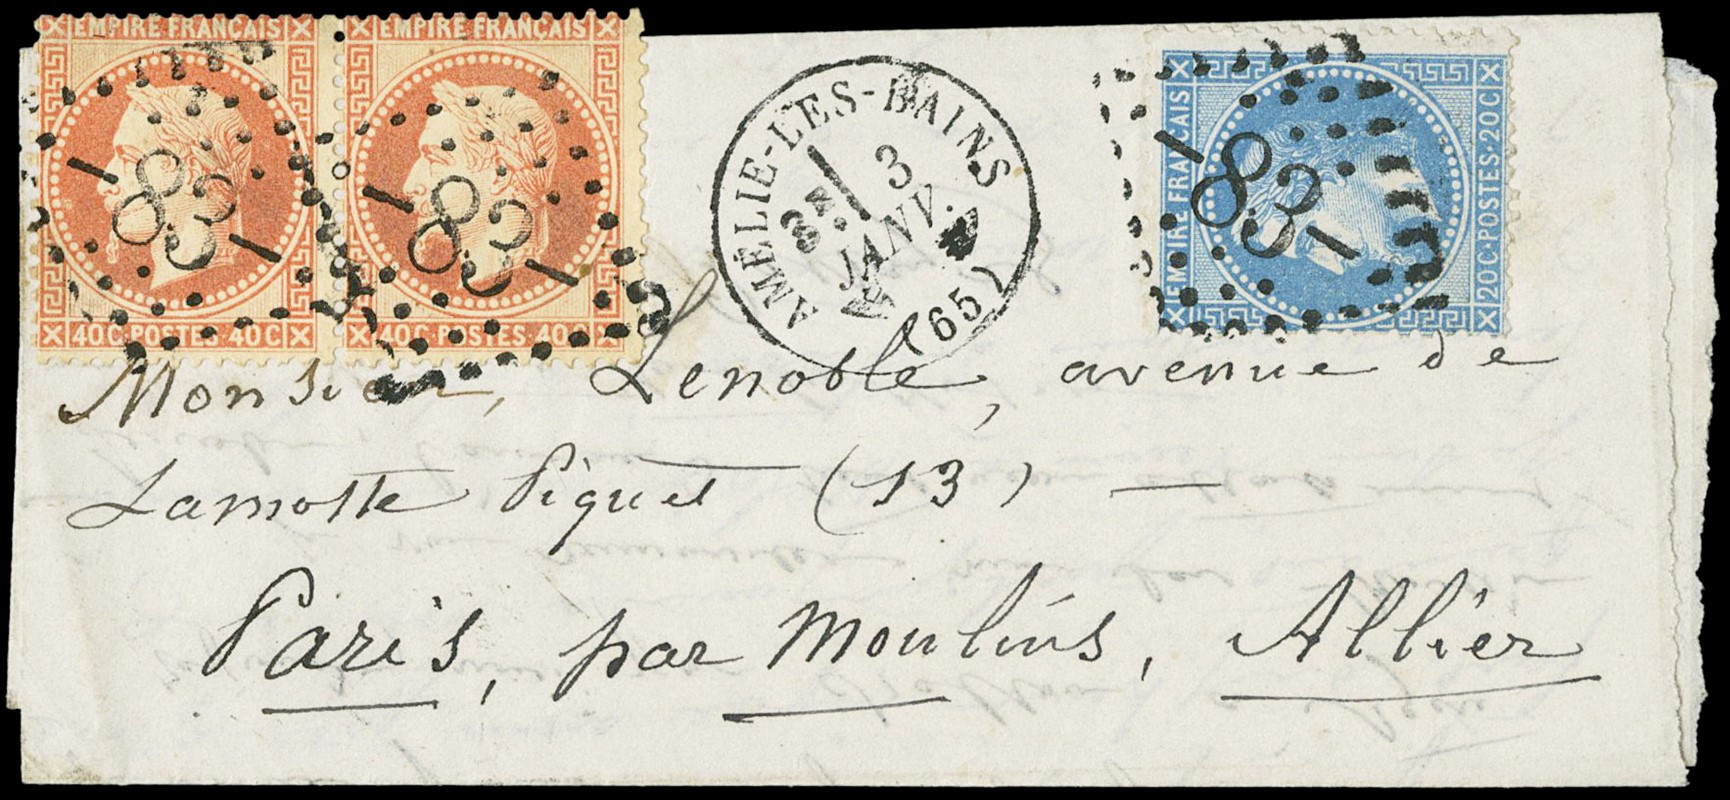 EMPIRE FRANÇAIS EMPIRE FRANÇAIS
83 83
40C·POSTES·40C 40C·POSTES·40C
AMÉLIE-LES-BAINS
3
JANV.
(65)
EMPIRE FRANÇAIS
83
20C·POSTES·20C
Monsieur, Lenoble, avenue de
Lamotte Piquet (13) —
Paris, par Moulins, Allier